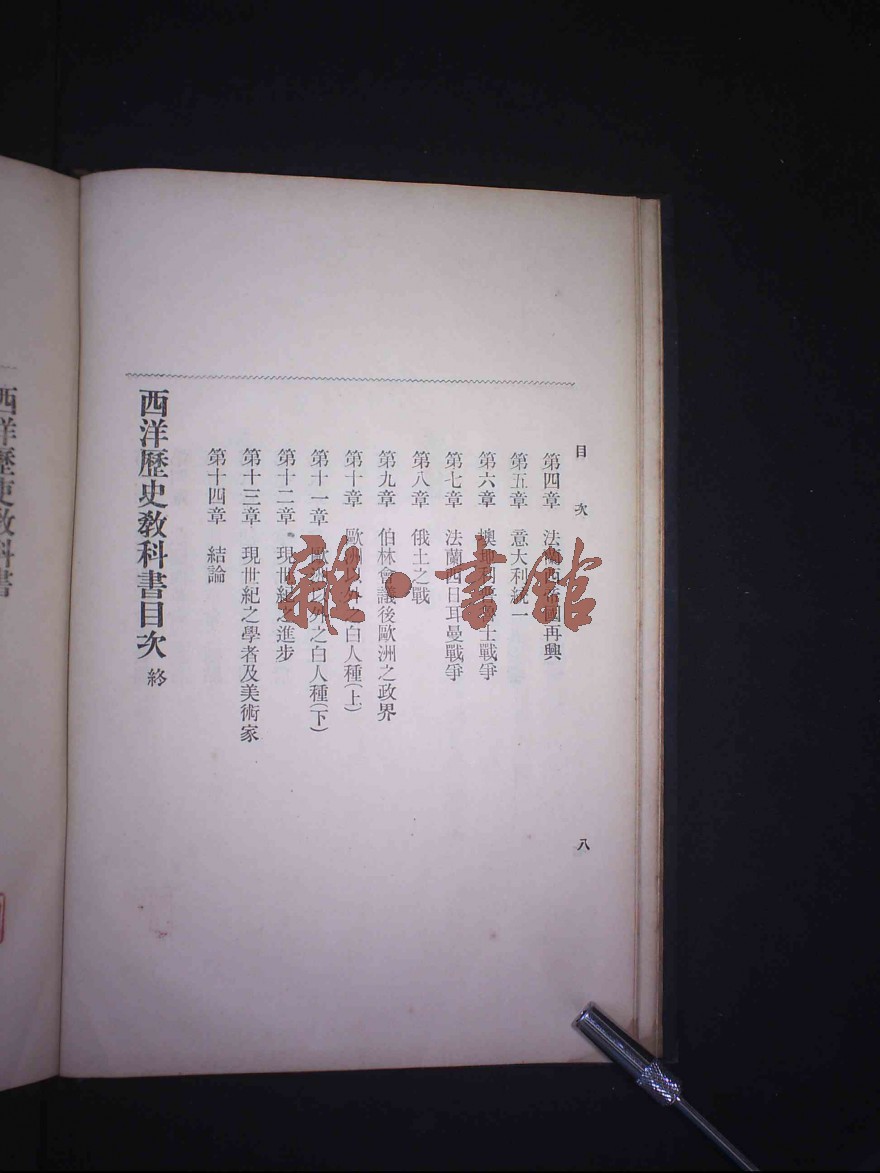 目次
八
第四章 法蘭西帝國再興
第五章 意大利統一
第六章 墺地利普魯士戰爭
第七章 法蘭西日耳曼戰爭
第八章 俄土之戰
第九章 伯林會議後歐洲之政界
第十章 歐洲以外之白人種(上)
第十一章 歐洲以外之白人種(下)
第十二章 現世紀之進步
第十三章 現世紀之學者及美術家
第十四章 結論
西洋歷史敎科書目次 終
西洋歷史敎科書
雜·書館